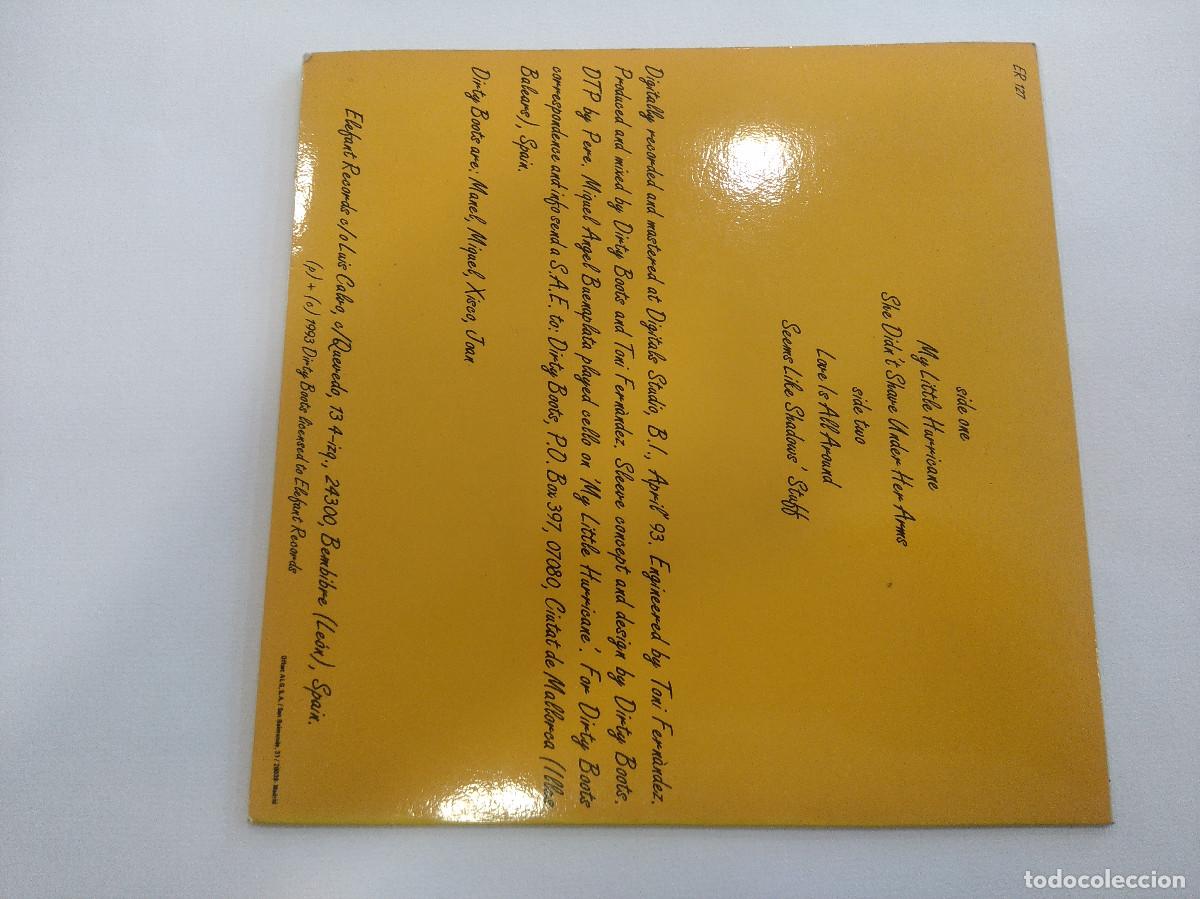 ER 127
side one
My Little Hurricane
She Didn't Shave Under Her Arms
side two
Love Is All Around
Seems Like Shadows' Stuff
Digitally recorded and mastered at Digitals Studio, B.I., April '93. Engineered by Toni Fernàndez.
Produced and mixed by Dirty Boots and Toni Fernàndez. Sleeve concept and design by Dirty Boots.
DTP by Pere. Miquel Angel Buenaplata played cello on 'My Little Hurricane'. For Dirty Boots
correspondence and info send a S.A.E. to: Dirty Boots, P.O. Box 397, 07080, Ciutat de Mallorca (Illes
Balears), Spain.
Dirty Boots are: Manel, Miquel, Xisco, Joan
Elefant Records c/o Luis Calvo, c/Quevedo, 13 4-izq., 24300, Bembibre (León), Spain.
(p) + (c) 1993 Dirty Boots licensed to Elefant Records
Offset A.L.G., S.A. / San Raimundo, 31 / 28039-Madrid
todocoleccion